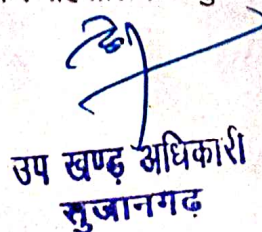 उप खण्ड़ अधिकारी
सुजानगढ़